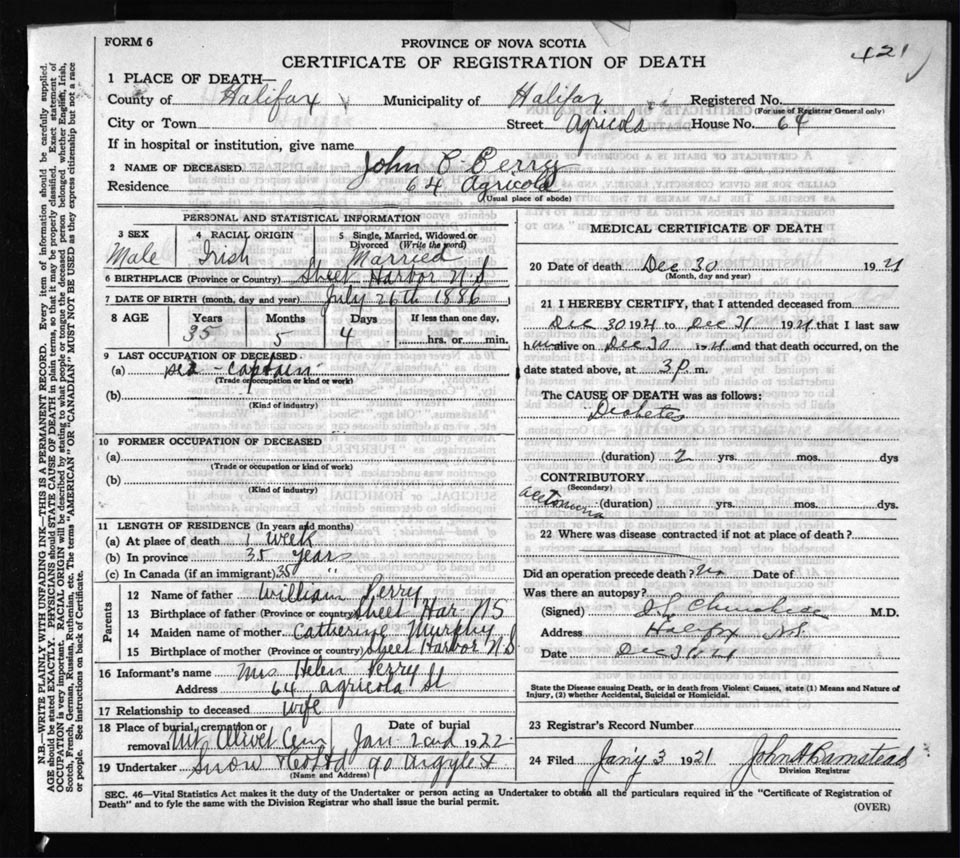 FORM 6
PROVINCE OF NOVA SCOTIA
421
CERTIFICATE OF REGISTRATION OF DEATH
1 PLACE OF DEATH—
County of Halifax Municipality of Halifax Registered No.
(For use of Registrar General only)
City or Town Street Agricola House No. 64
If in hospital or institution, give name
2 NAME OF DECEASED John C Perry
Residence 64 Agricola
(Usual place of abode)
PERSONAL AND STATISTICAL INFORMATION
3 SEX Male
4 RACIAL ORIGIN Irish
5 Single, Married, Widowed or Divorced (Write the word) Married
6 BIRTHPLACE (Province or Country) Sheet Harbor N.S
7 DATE OF BIRTH (month, day and year) July 26th 1886
8 AGE Years 35 Months 5 Days 4 If less than one day, hrs. or min.
9 LAST OCCUPATION OF DECEASED
(a) Sea-Captain
(Trade or occupation or kind or work)
(b)
(Kind of industry)
10 FORMER OCCUPATION OF DECEASED
(a)
(Trade or occupation or kind or work)
(b)
(Kind of industry)
11 LENGTH OF RESIDENCE (In years and months)
(a) At place of death 1 Week
(b) In province 35 years
(c) In Canada (if an immigrant) 35 "
Parents
12 Name of father William Perry
13 Birthplace of father (Province or country) Sheet Har. NS
14 Maiden name of mother Catherine Murphy
15 Birthplace of mother (Province or country) Sheet Harbor N.S
16 Informant's name Mrs Helen Perry
Address 64 Agricola St
17 Relationship to deceased Wife
18 Place of burial, cremation or removal Mt Olivet Cem
Date of burial Jan 2nd 1922
19 Undertaker Snow & Co Ltd 90 Argyle St
(Name and Address)
MEDICAL CERTIFICATE OF DEATH
20 Date of death Dec 30 1921
(Month, day and year)
21 I HEREBY CERTIFY, that I attended deceased from
Dec 30 1921 to Dec 31 1921 that I last saw
h alive on Dec 30 1921 and that death occurred, on the
date stated above, at 3 P. m.
The CAUSE OF DEATH was as follows:
Diabetes
(duration) 2 yrs. mos. dys
CONTRIBUTORY
(Secondary)
(duration) yrs. mos. dys.
22 Where was disease contracted if not at place of death?
Did an operation precede death? No Date of
Was there an autopsy?
(Signed) M.D.
Address Halifax N.S.
Date Dec 31 21
State the Disease causing Death, or in death from Violent Causes, state (1) Means and Nature of
Injury, (2) whether Accidental, Suicidal or Homicidal.
23 Registrar's Record Number
24 Filed Jan'y 3 1921 John A Barnstead
Division Registrar
SEC. 46—Vital Statistics Act makes it the duty of the Undertaker or person acting as Undertaker to obtain all the particulars required in the "Certificate of Registration of
Death" and to fyle the same with the Division Registrar who shall issue the burial permit.
(OVER)
N.B.—WRITE PLAINLY WITH UNFADING INK—THIS IS A PERMANENT RECORD. Every item of information should be carefully supplied.
AGE should be stated EXACTLY. PHYSICIANS should STATE CAUSE OF DEATH in plain terms, so that it may be properly classified. Exact statement of
OCCUPATION is very important. RACIAL ORIGIN will be described by stating to what people or tongue the deceased person belonged whether English, Irish,
Scotch, French, German, Russian, Ruthenian, etc. The terms "AMERICAN" OR "CANADIAN" MUST NOT BE USED as they express citizenship but not a race
or people. See instructions on back of Certificate.